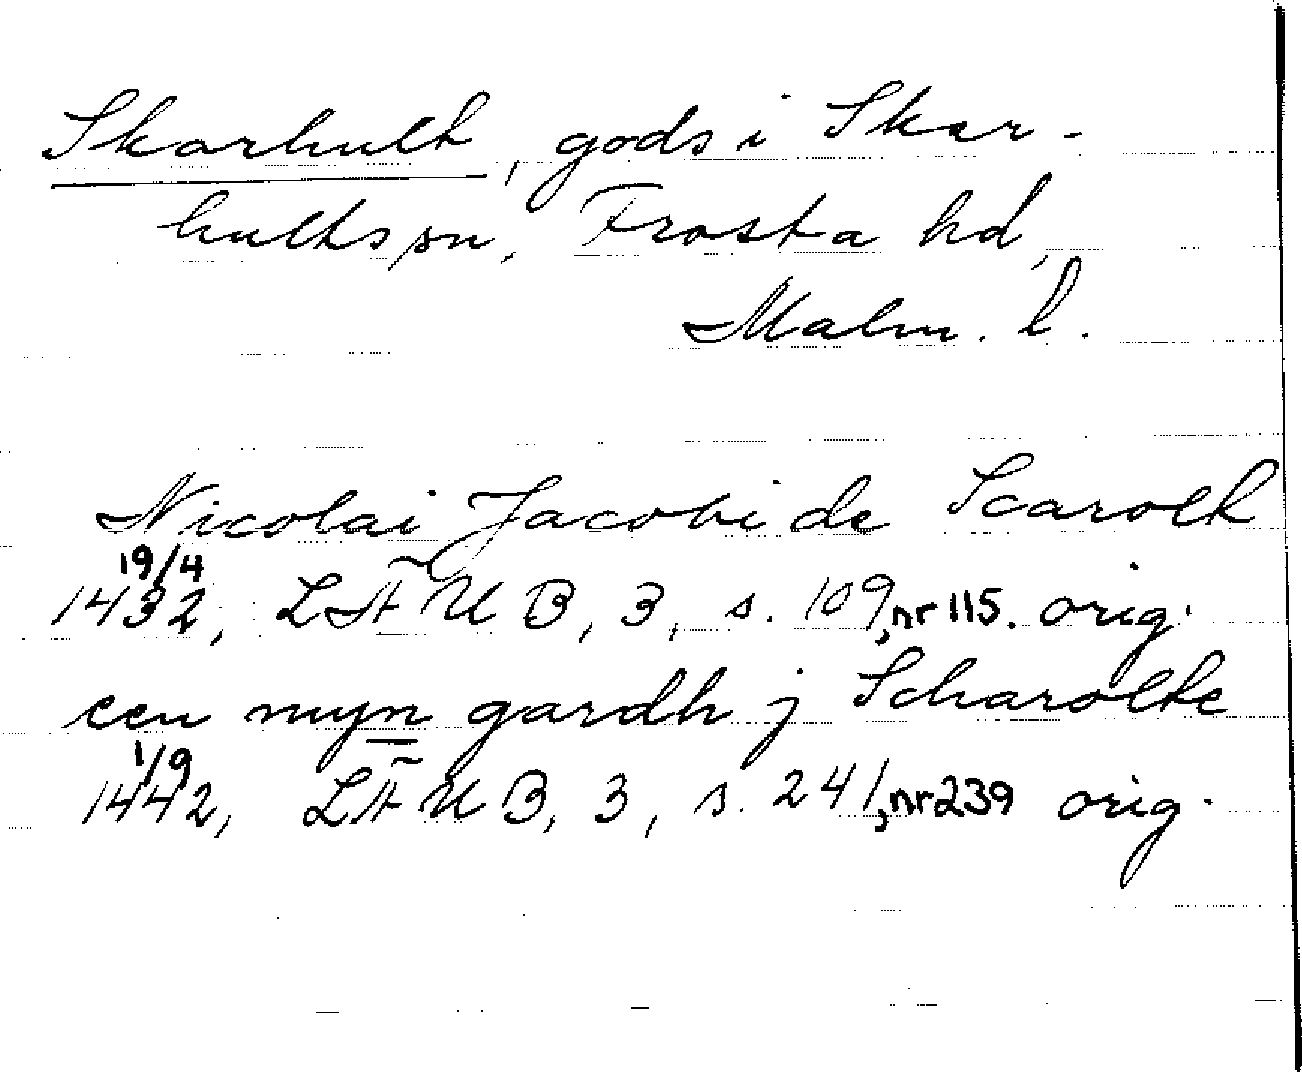 Skarhult, gods i Skar-
hults sn, Frosta hd,
Malm. l.
Nicolai Jacobi de Scarolt
19/4
1432, LÄUB, 3, s. 109, nr 115. orig.
een myn gardh j Scharolte
1/9
1442, LÄUB, 3, s. 241, nr 239 orig.